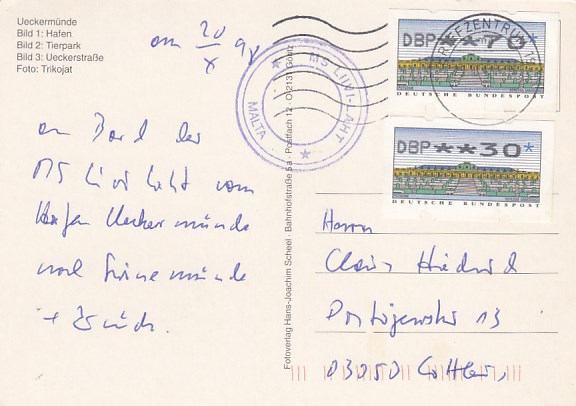 Ueckermünde
Bild 1: Hafen
Bild 2: Tierpark
Bild 3: Ueckerstraße
Foto: Trikojat
am 20
x
an Bord der
MS Liwi Laht vom
Hafen Ueckermünde
nach Swinemünde
+ zurück.
MS LIIWI-LAHT
MALTA
Fotoverlag Hans-Joachim Scheel · Bahnhofstraße 5a · Postfach 12 · O-2131 Götz
BRIEFZENTRUM
DBP ***70*
DEUTSCHE BUNDESPOST
DBP **30*
DEUTSCHE BUNDESPOST
Herrn
Heidrich
13
03050 Cottbus,